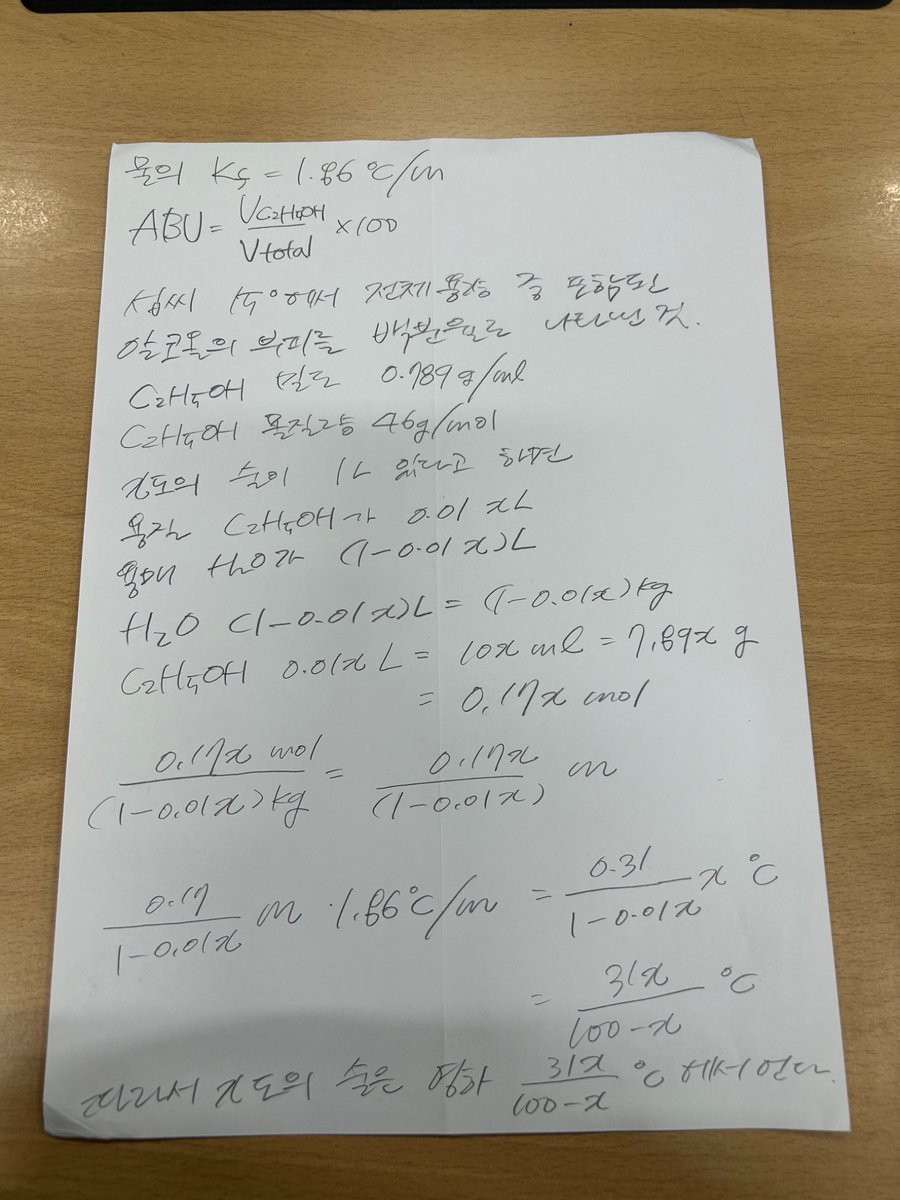 물의 Kf = 1.86 ℃/m
ABU = VC2H5OH / Vtotal × 100
섭씨 15°에서 전체용량 중 포함된
알코올의 부피를 백분율로 나타낸 것.
C2H5OH 밀도 0.789 g/ml
C2H5OH 몰질량 46g/mol
x도의 술이 1L 있다고 하면
용질 C2H5OH가 0.01 xL
용매 H2O가 (1-0.01x)L
H2O (1-0.01x)L = (1-0.01x)kg
C2H5OH 0.01x L = 10x ml = 7.89x g
= 0.17x mol
0.17x mol / (1-0.01x)kg = 0.17x / (1-0.01x) m
0.17 / 1-0.01x m · 1.86℃/m = 0.31 / 1-0.01x x ℃
= 31x / 100-x ℃
따라서 x도의 술은 영하 31x / 100-x ℃에서 언다.